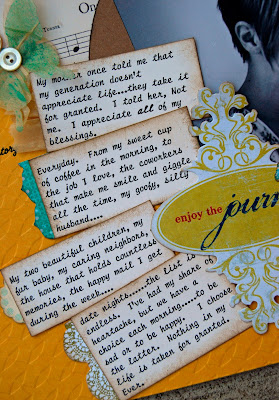 On
My mother once told me that
my generation doesn't
appreciate life...they take it
for granted. I told her, Not
me. I appreciate all of my
blessings.
Everyday. From my sweet cup
of coffee in the morning, to
the job I love, the coworkers
that make me smile and giggle
all the time, my goofy, silly
husband....
enjoy the
My two beautiful children, my
fur baby, my caring neighbors,
the house that holds countless
memories, the happy mail I get
during the week....
date nights.....the list is
endless. I've had my share of
heartache, but we have a
choice each morning....to be
sad or to be happy. I choose
the latter. Nothing in my
life is taken for granted.
Ever.